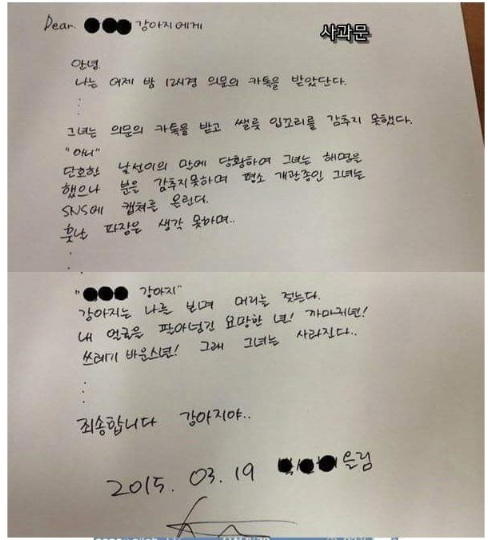 Dear. ●●● 강아지에게
사과문
안녕
나는 어제 밤 12시경 의문의 카톡을 받았단다.
그녀는 의문의 카톡을 받고 쌜룩 입꼬리를 감추지 못했다.
"아니"
단호한 날선이의 말에 당황하여 그녀는 해명은
했으나 분을 감추지못하며 평소 개관종인 그녀는
SNS에 캡쳐를 올린다.
훗날 파장은 생각 못하며..
"●●● 강아지"
강아지는 나를 보며 머리를 젓는다.
내 얼굴을 팔아넘긴 요망한 년! 까마귀년!
쓰레기 바운스년! 그래 그녀는 사라진다..
죄송합니다 강아지야..
2015. 03. 19 ●●● 올림